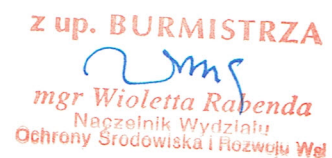 z up. BURMISTRZA
mgr Wioletta Rabenda
Naczelnik Wydziału
Ochrony Środowiska i Rozwoju Wsi